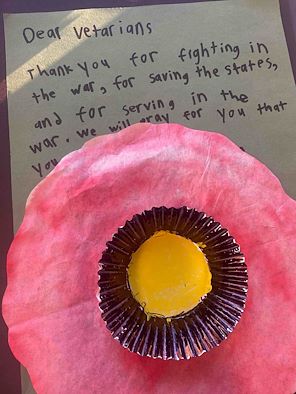 Dear Vetarians
Thank you for fighting in
the war, for saving the states,
and for serving in the
war. we will pray for you that
you